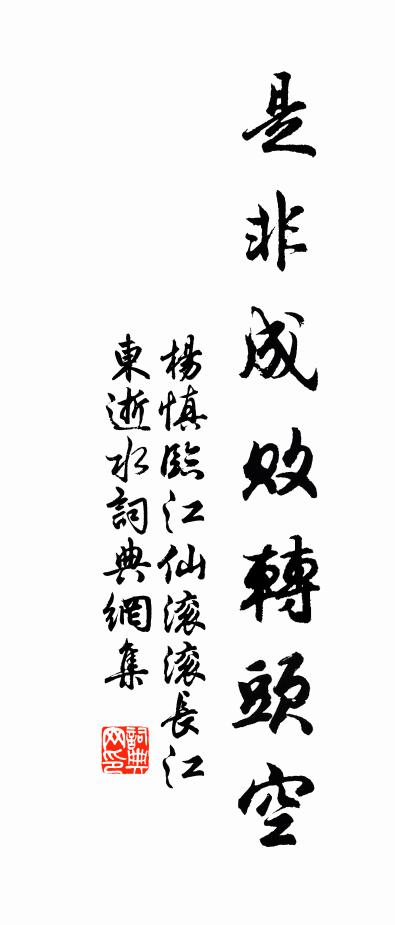 是非成敗轉頭空
楊慎臨江仙滚滚長江
東逝水詞典網集
詞典网印